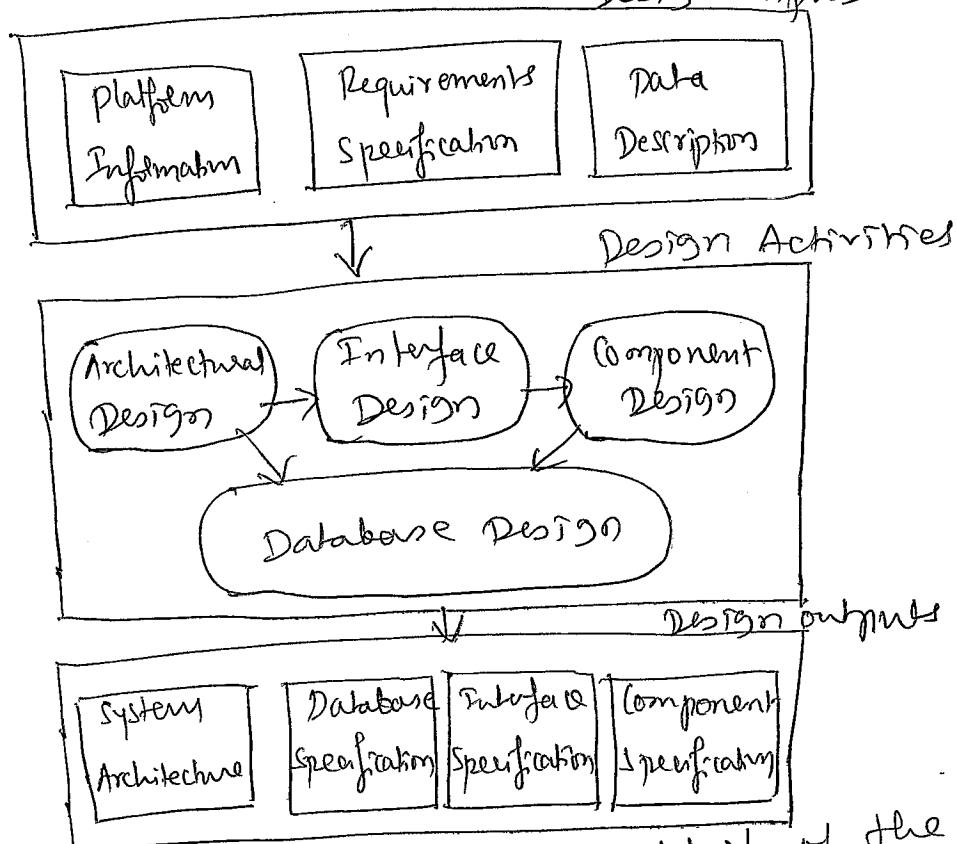 Design
Platform
Information
Requirements
Specification
Data
Description
Design Activities
Architectural
Design
Interface
Design
Component
Design
Database Design
Design outputs
System
Architecture
Database
Specification
Interface
Specification
Component
Specification
of the